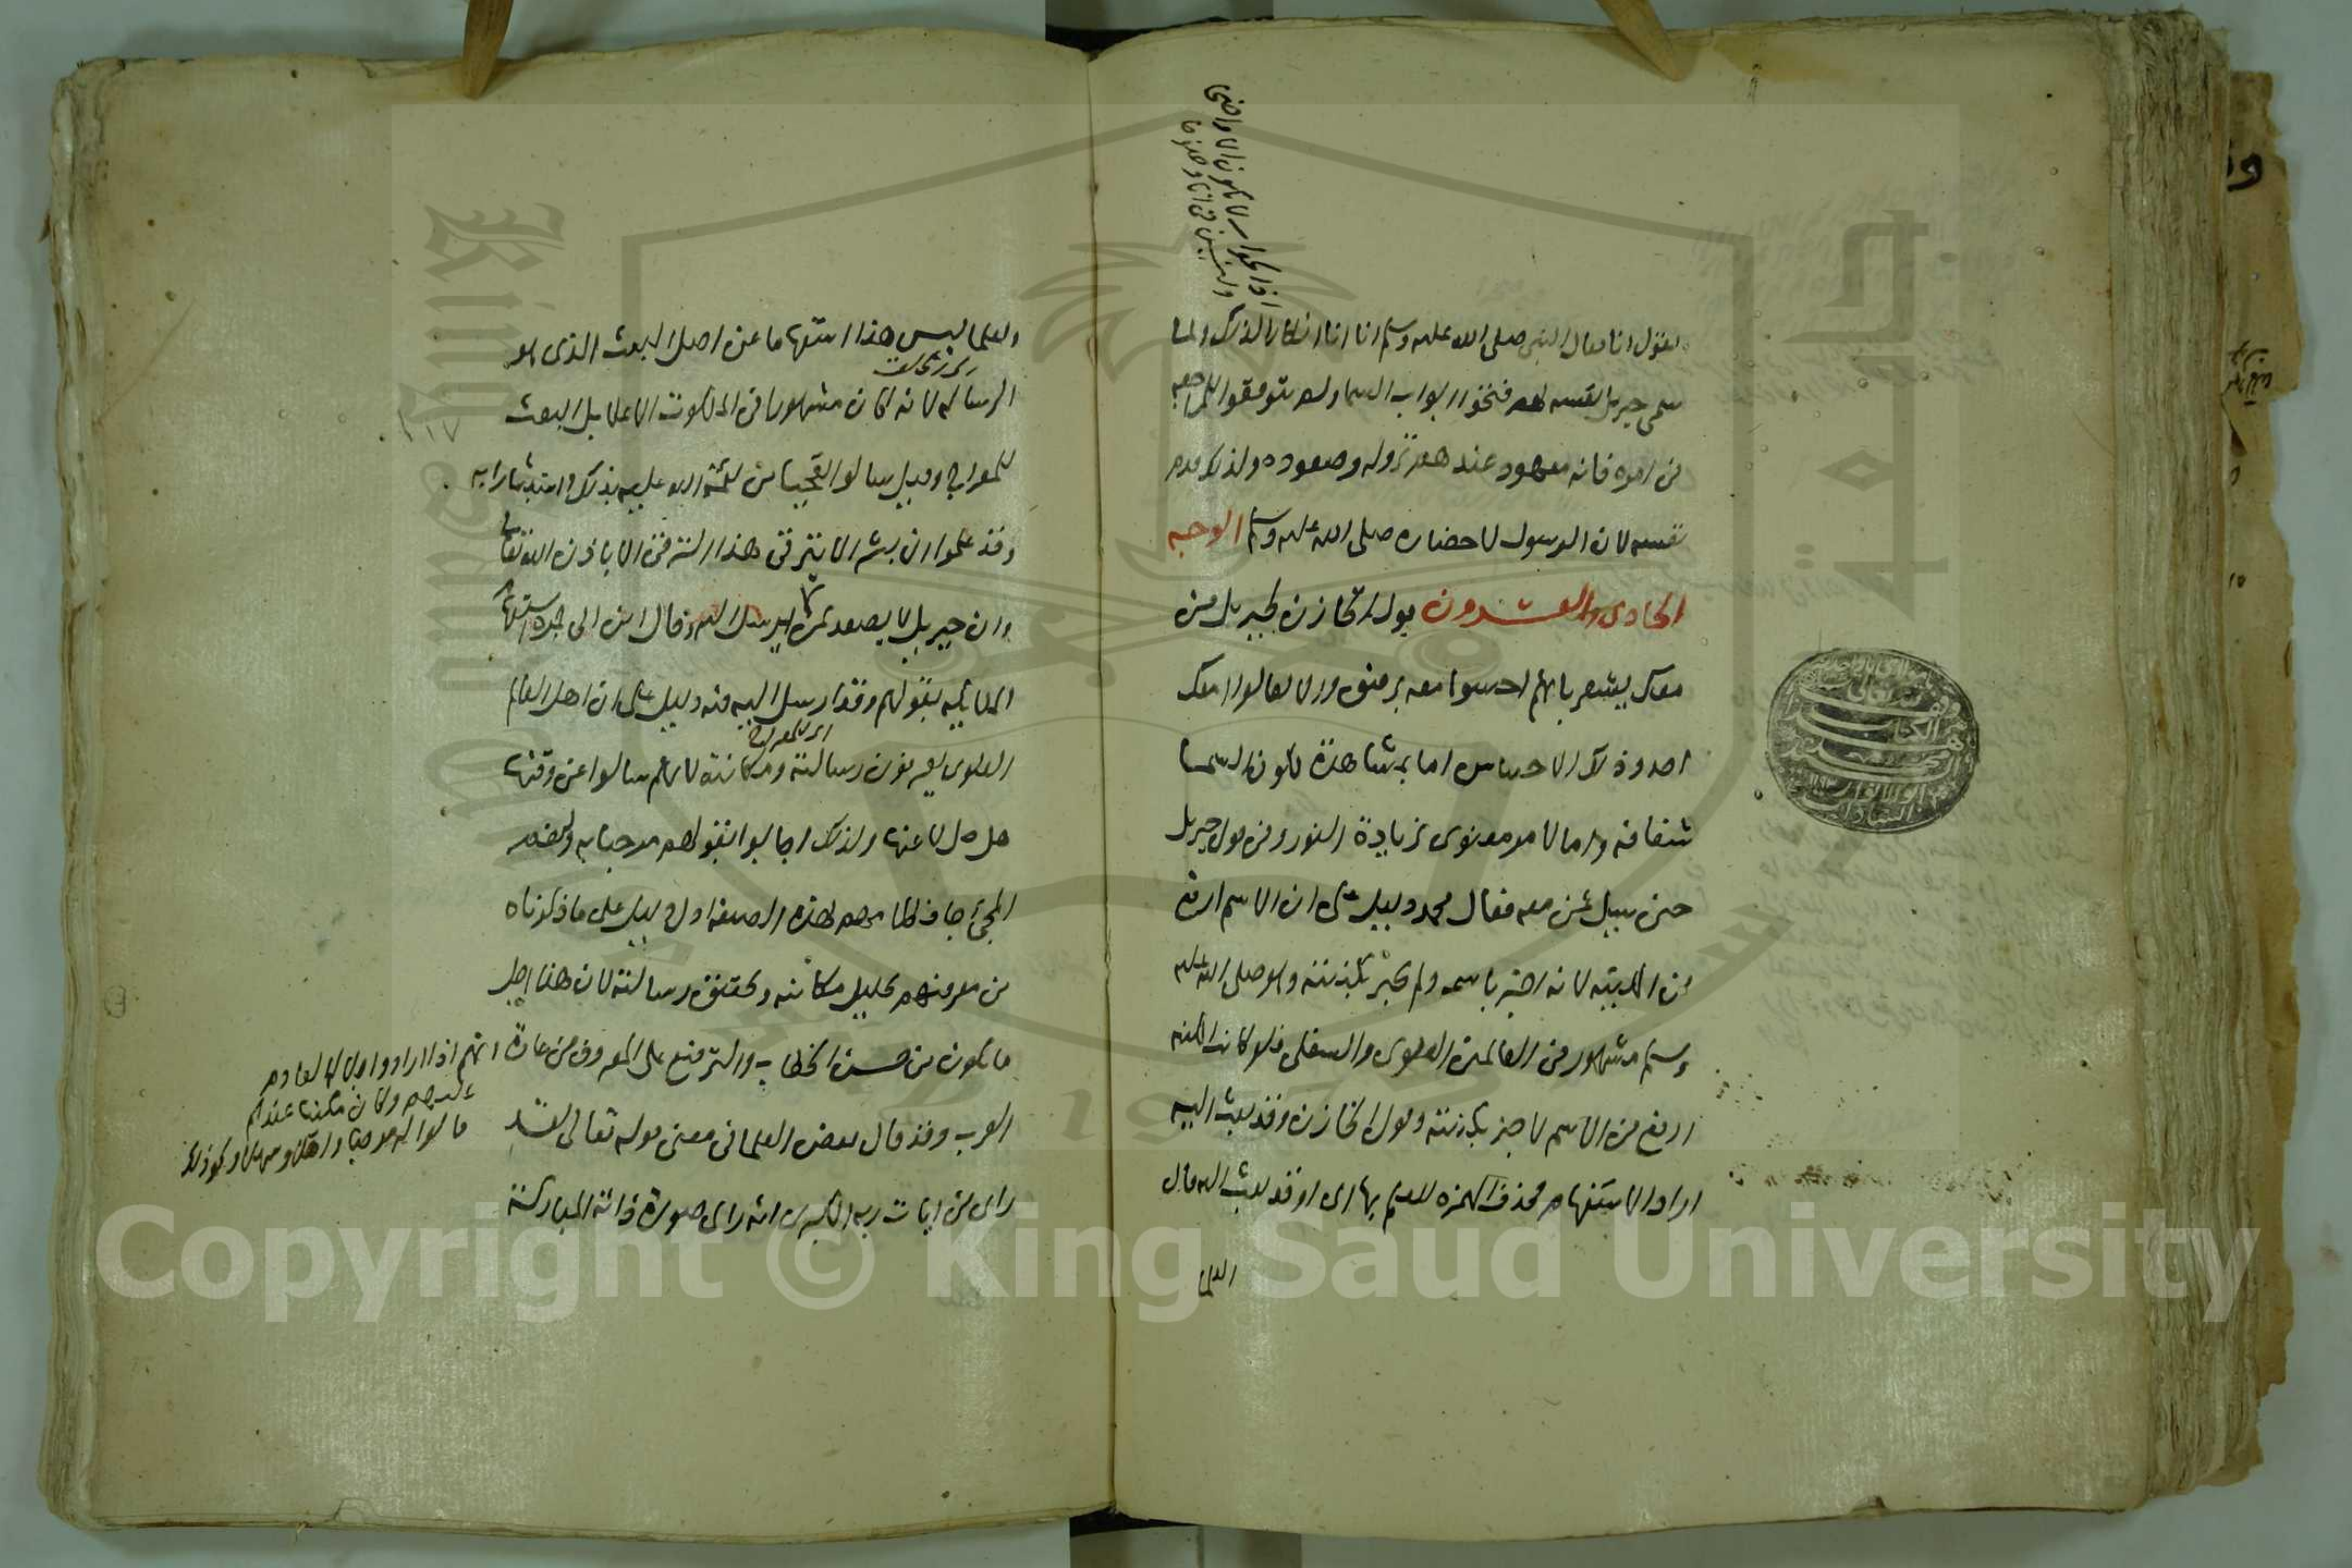 اذ الجواب لا يكون الا واضحا
وليس في انا وضوحا
يقول انا فقال النبي صلى الله عليه وسلم انا انا انكارا لذلك ولما
سمى جبريل نفسه لهم فتحوا ابواب السما ولم يتوقفوا
من امره فانه معهود عندهم نزوله وصعوده ولذلك قدم
نفسه لان الرسول لاحضاره صلى الله عليه وسلم الوجه
الحادي والعشرون قول الخازن لجبريل من
معك يشعر بانهم احسوا معه برفيق والا لقالوا امعك
احد وذلك الاحساس اما بمشاهدة لكون السما
شفافة واما لامر معنوي بزيادة النور وفي قول جبريل
حين سيل من معه فقال محمد دليل على ان الاسم ارفع
من الكنية لانه اخبر باسمه ولم يخبر بكنيته وهو صلى الله عليه
وسلم مشهور في العالمين العلوي والسفلي فلو كانت الكنية
ارفع من الاسم لاخبر بكنيته وقول الخازن وقد بعث اليه
اراد الاستفهام فحذف الهمزة للعلم بها اى اوقد بعث اليه قال
العلما
والعلما ليس هذا استفهاما عن اصل البعث الذي هو
الرسالة لانه كان مشهورا في الملكوت الاعلا بل البعث
للمعراج وقيل سالوا تعجبا من نعمة الله عليه بذلك واستبشارا به
وقد علموا ان بشرا لا يترقى هذا الترقى الا باذن الله تعالى
وان جبريل لا يصعد بمن لم يرسل اليه وقال ابن ابي جمره استفهام
الملايكة بقولهم وقد ارسل اليه فيه دليل على ان اهل العالم
العلوي يعرفون رسالته ومكانته لانهم سالوا عن وقتها
اى للمعراج
هل حل لا عنها ولذلك اجابوا بقولهم مرحبا به ولنعم
المجئ جا فكلامهم بهذه الصيغة اول دليل على ما ذكرناه
من معرفتهم بجليل مكانته وتحقيق رسالته لان هذا اجل
ما يكون من حسن الخطاب والترفيع على المعروف من عادة
العرب وقد قال بعض العلما في معنى قوله تعالى لقد
راى من ايات ربه الكبرى انه راى صورة ذاته المباركة
انهم اذا ارادوا اجلال القادم
عليهم وكان مكينا عندهم
قالوا له مرحبا واهلا وسهلا ونحو ذلك
Copyright © King Saud University